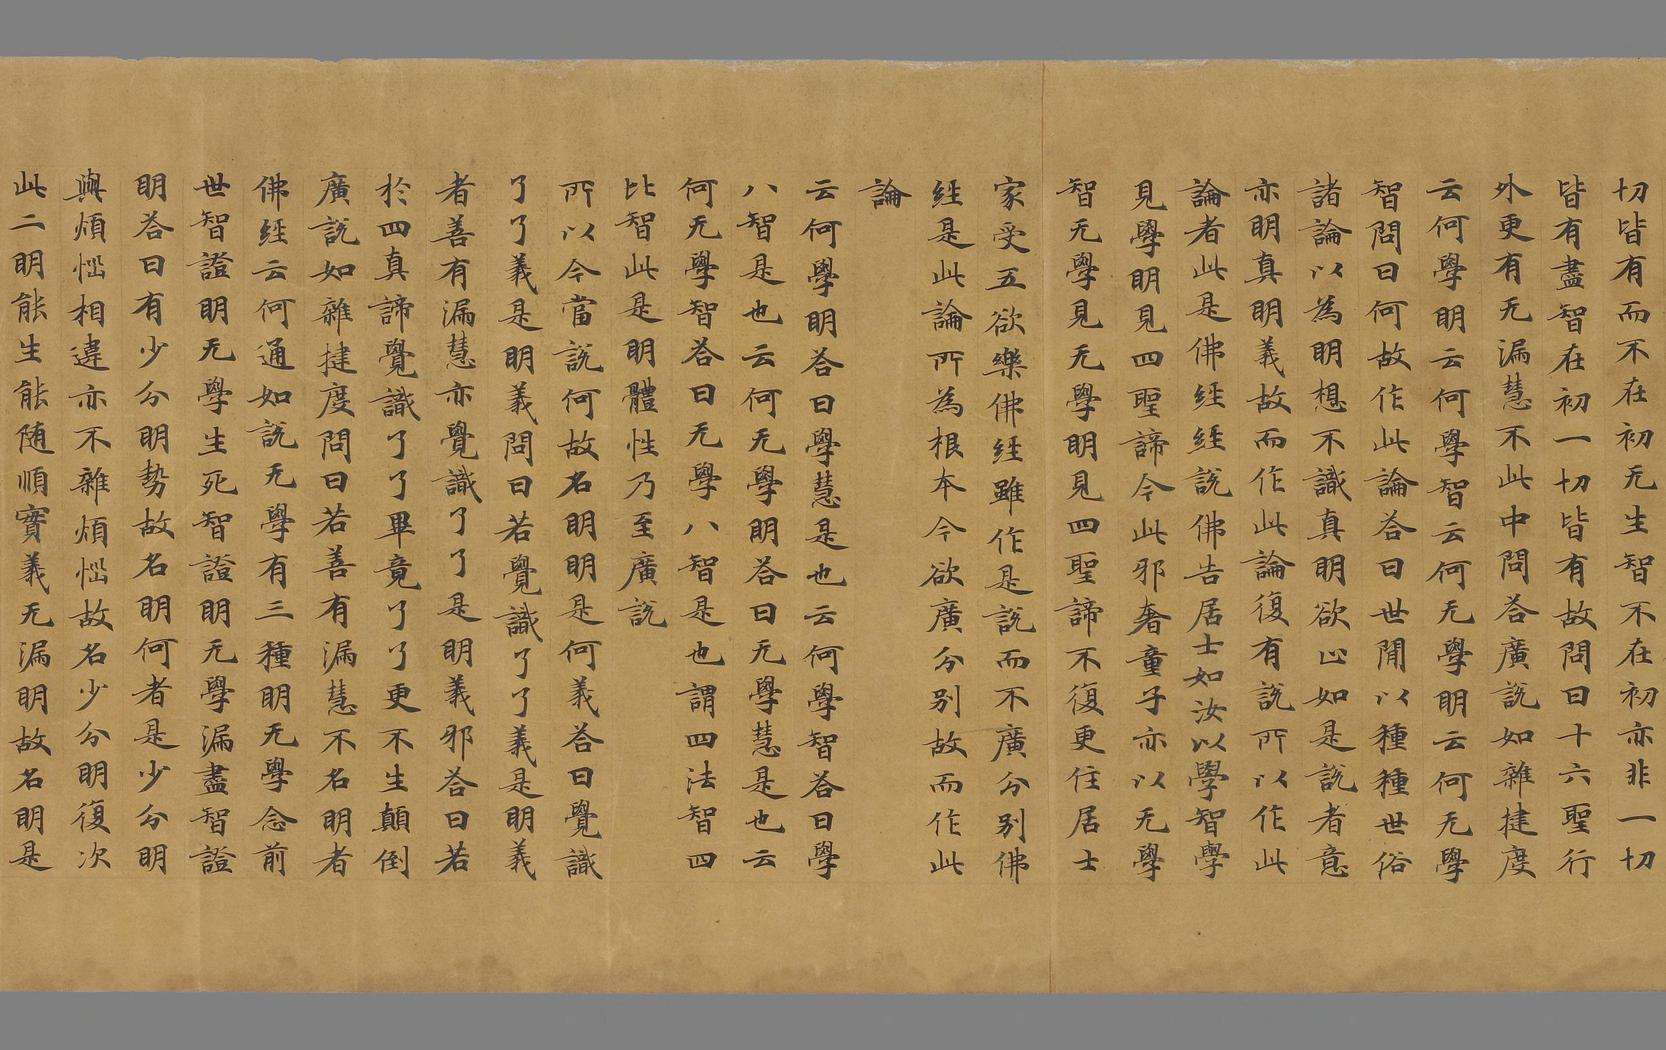 切皆有而不在初无生智不在初亦非一切
皆有盡智在初一切皆有故問曰十六聖行
外更有无漏慧不此中問荅廣說如雜揵度
云何學明云何學智云何无學明云何无學
智問曰何故作此論荅曰世間以種種世俗
諸論以為明想不識真明欲止如是說者意
亦明真明義故而作此論復有說所以作此
論者此是佛經經說佛告居士如汝以學智學
見學明見四聖諦今此邪奢童子亦以无學
智无學見无學明見四聖諦不復更住居士
家受五欲樂佛經雖作是說而不廣分別佛
經是此論所為根本今欲廣分別故而作此
論
云何學明荅曰學慧是也云何學智荅曰學
八智是也云何无學明荅曰无學慧是也云
何无學智荅曰无學八智是也謂四法智四
比智此是明體性乃至廣說
所以今當說何故名明明是何義荅曰覺識
了了義是明義問曰若覺識了了義是明義
者善有漏慧亦覺識了了是明義邪荅曰若
於四真諦覺識了了畢竟了了更不生顛倒
廣說如雜揵度問曰若善有漏慧不名明者
佛經云何通如說无學有三種明无學念前
世智證明无學生死智證明无學漏盡智證
明荅曰有少分明勢故名明何者是少分明
與煩惱相違亦不雜煩惱故名少分明復次
此二明能生能随順實義无漏明故名明是